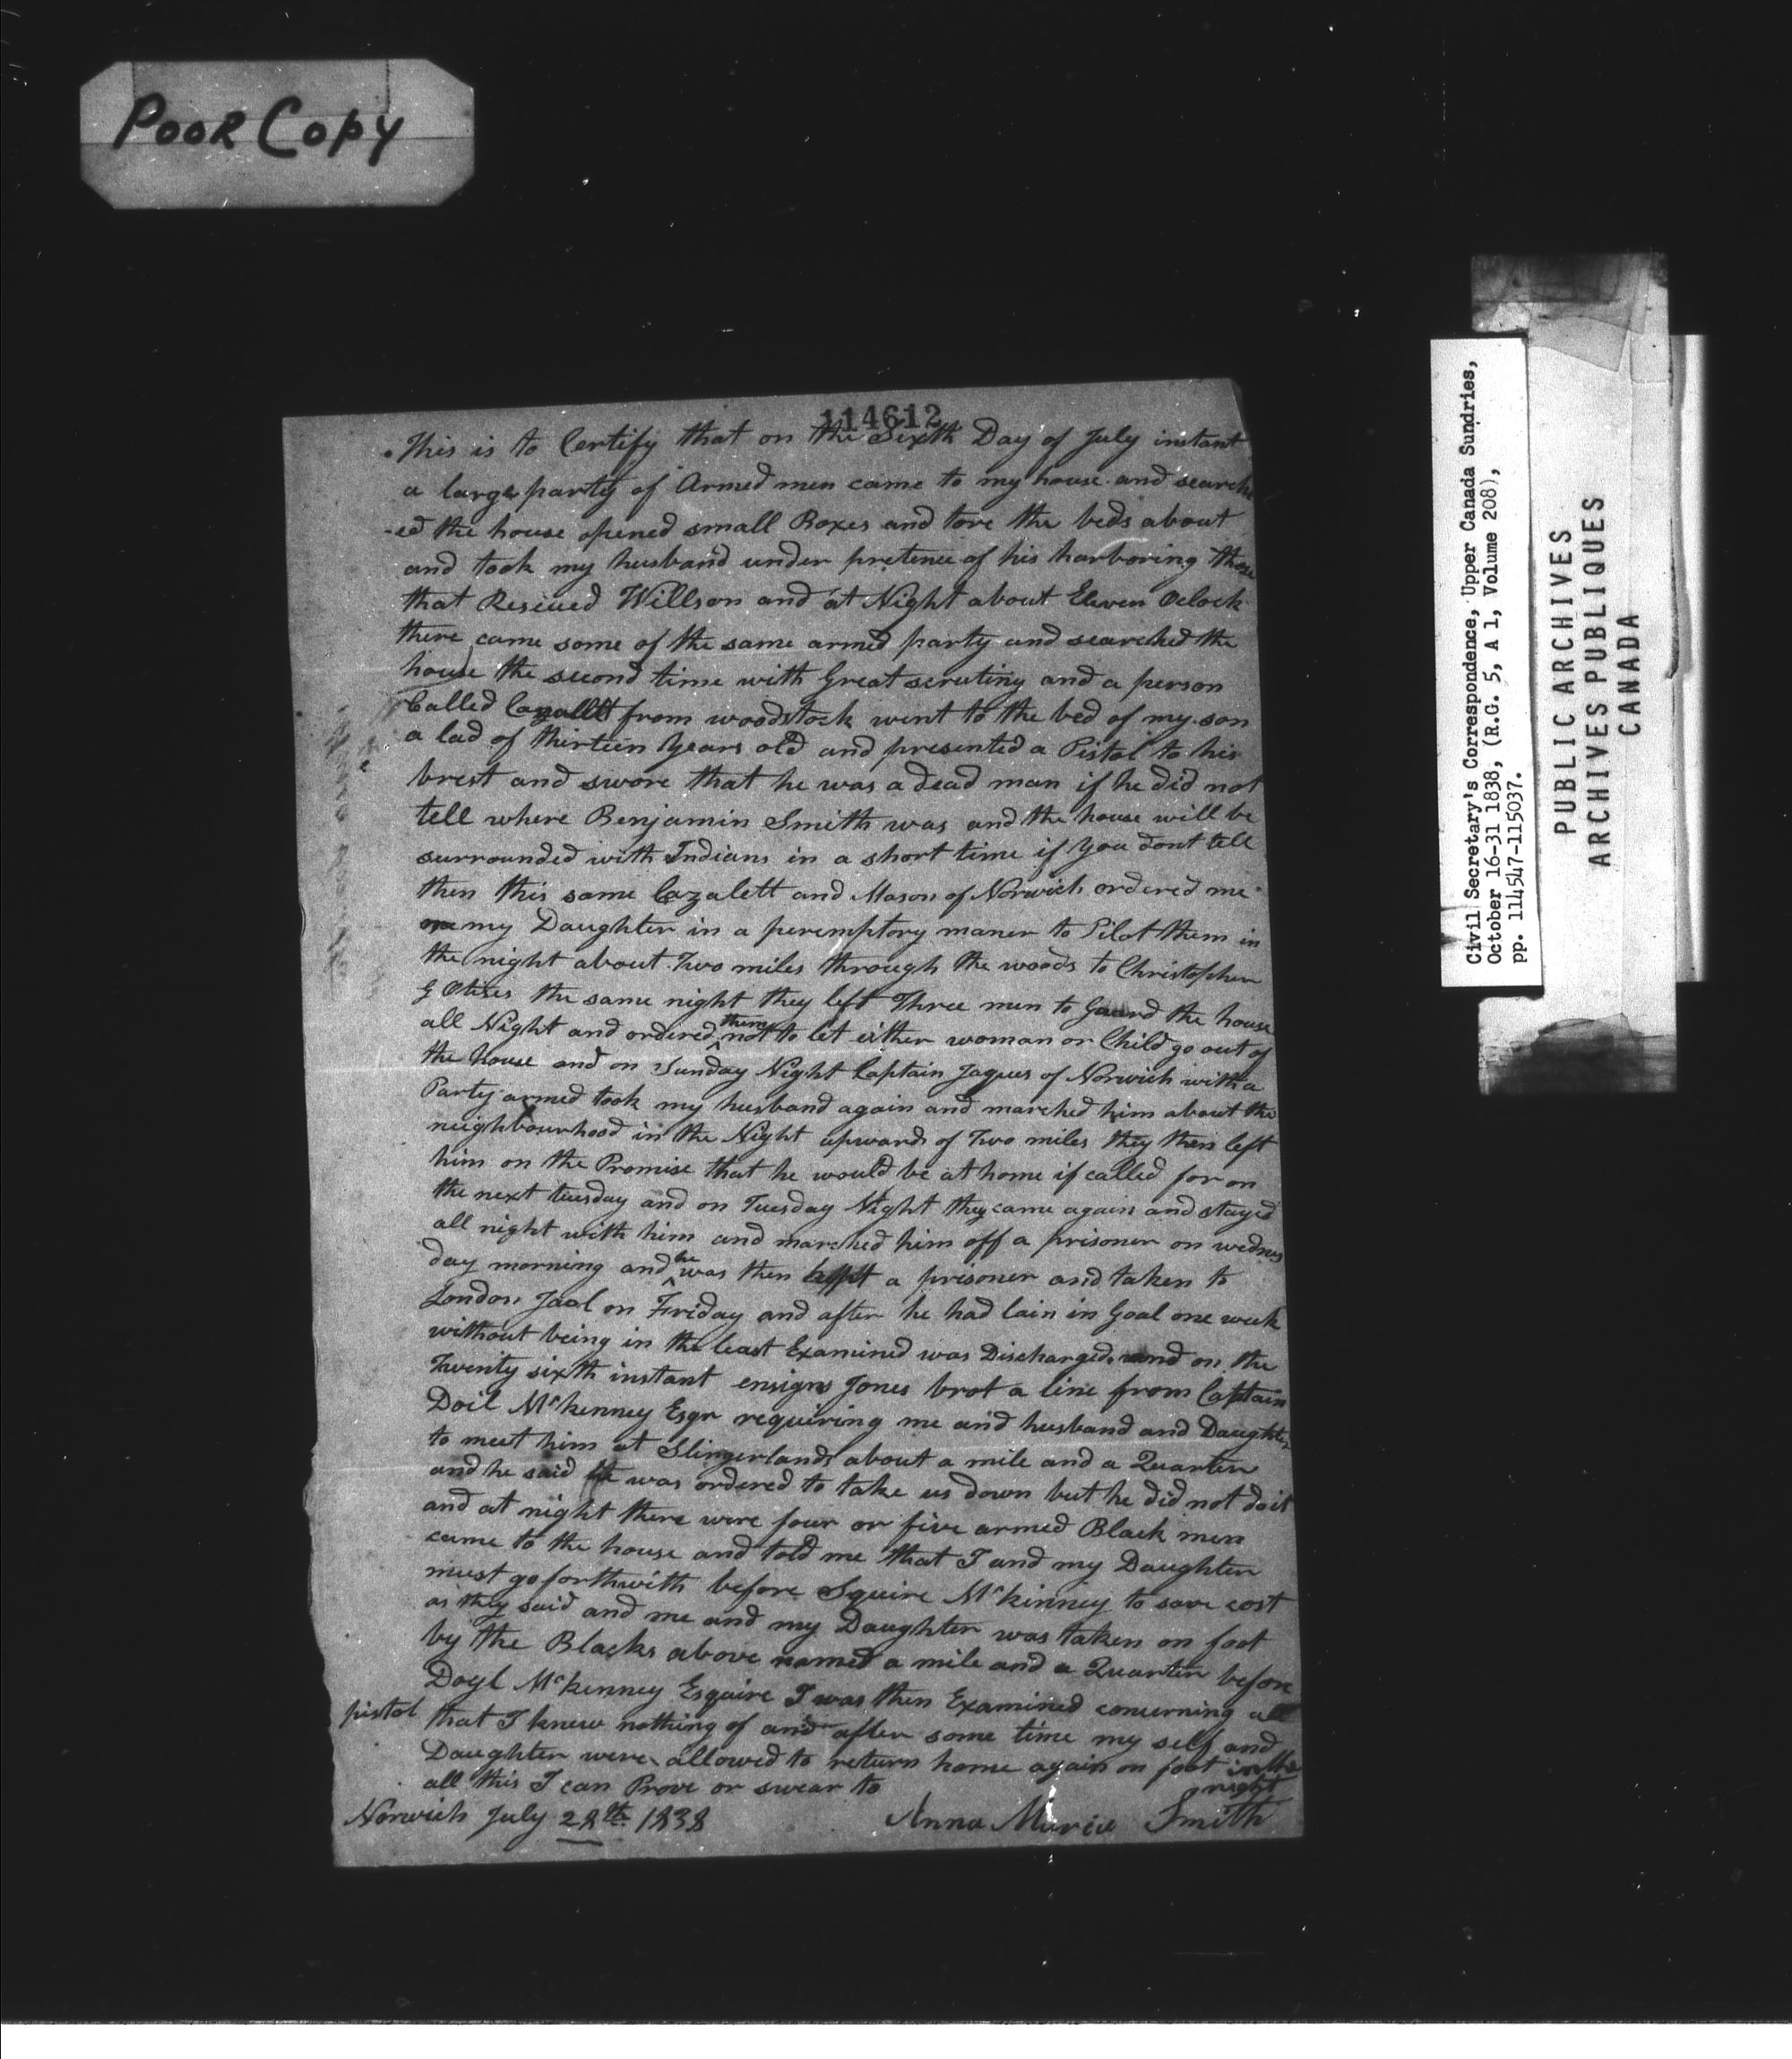 Poor Copy
114612
This is to Certify that on the Sixth Day of July instant
a large party of Armed men came to my house and search
-ed the house opened small Boxes and tore the beds about
and took my husband under pretence of his harboring those
that Rescued Willson and at Night about Eleven Oclock
there came some of the same armed party and searched the
house the second time with Great scrutiny and a person
Called Cazallt from woodstock went to the bed of my son
a lad of thirteen Years old and presented a Pistol to his
brest and swore that he was a dead man if he did not
tell where Benjamin Smith was and the house will be
surrounded with Indians in a short time if You dont tell
then this same Cazalett and Mason of Norwich ordered me
my Daughter in a peremptory maner to Pilot them in
the night about Two miles through the woods to Christopher
G the same night they left Three men to Guard the house
all Night and ordered them not to let either woman or Child go out of
the house and on Sunday Night Captain Jaques of Norwich with a
Party armed took my husband again and marched him about the
neighbourhood in the Night upwards of Two miles they then left
him on the Promise that he would be at home if called for on
the next tuesday and on Tuesday Night they came again and stayed
all night with him and marched him off a prisoner on wednes
day morning and he was then kept a prisoner and taken to
London Jaol on Friday and after he had lain in Goal one week
without being in the least Examined was Discharged and on the
Twenty sixth instant ensign Jones brot a line from Captain
Doil McKenney Esqr requiring me and husband and Daughter
to meet him at Slingerlands about a mile and a Quarter
and he said he was ordered to take us down but he did not do it
and at night there were four or five armed Black men
came to the house and told me that I and my Daughter
must go forthwith before Squire McKinney to save cost
as they said and me and my Daughter was taken on foot
by the Blacks above named a mile and a Quarter before
Doyl McKenney Esquire I was then Examined concerning all
pistol that I knew nothing of and after some time my self and
Daughter were allowed to return home again on foot in the
night
all this I can Prove or swear to
Norwich July 28th 1838 Anna Smith
Civil Secretary's Correspondence, Upper Canada Sundries,
October 16-31 1838, (R.G. 5, A 1, Volume 208),
pp. 114547-115037.
PUBLIC ARCHIVES
ARCHIVES PUBLIQUES
CANADA